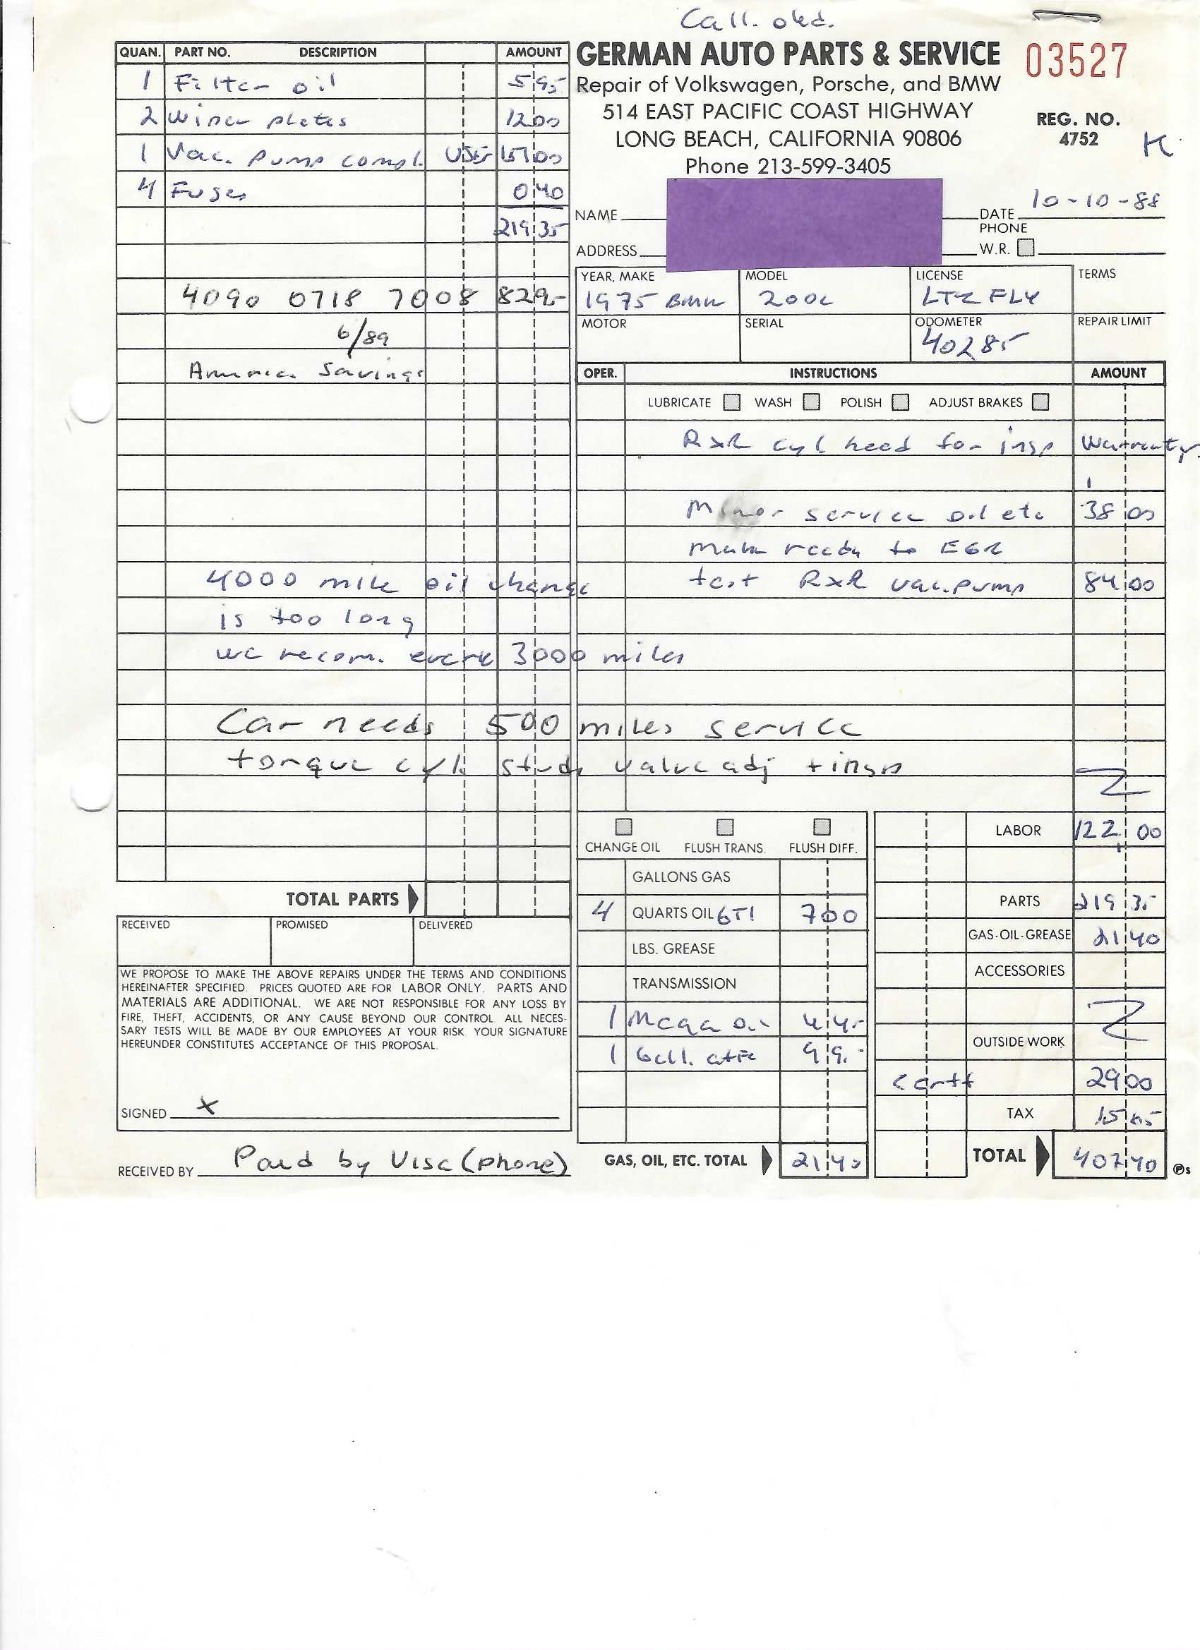 Call. oked.
QUAN. PART NO. DESCRIPTION AMOUNT
1 Filter oil 5 95
2 Wiper plates 12 00
1 Vac. pump compl. USED
4 Fuses 0 40
219 35
4090 0718 7008 829-
6/89
America Savings
4000 mile oil change
is too long
we recom. every 3000 miles
Car needs 500 miles service
torque cyl. studs valve adj
TOTAL PARTS
RECEIVED PROMISED DELIVERED
WE PROPOSE TO MAKE THE ABOVE REPAIRS UNDER THE TERMS AND CONDITIONS
HEREINAFTER SPECIFIED. PRICES QUOTED ARE FOR LABOR ONLY. PARTS AND
MATERIALS ARE ADDITIONAL. WE ARE NOT RESPONSIBLE FOR ANY LOSS BY
FIRE, THEFT, ACCIDENTS, OR ANY CAUSE BEYOND OUR CONTROL. ALL NECES-
SARY TESTS WILL BE MADE BY OUR EMPLOYEES AT YOUR RISK. YOUR SIGNATURE
HEREUNDER CONSTITUTES ACCEPTANCE OF THIS PROPOSAL.
SIGNED x
RECEIVED BY Paid by Visa (phone)
GERMAN AUTO PARTS & SERVICE
Repair of Volkswagen, Porsche, and BMW
514 EAST PACIFIC COAST HIGHWAY
LONG BEACH, CALIFORNIA 90806
Phone 213-599-3405
03527
REG. NO.
4752
K
NAME DATE 10-10-88
PHONE
ADDRESS W.R.
YEAR, MAKE MODEL LICENSE TERMS
1975 BMW 2002 LTZ FLY
MOTOR SERIAL ODOMETER REPAIR LIMIT
40285
OPER. INSTRUCTIONS AMOUNT
LUBRICATE WASH POLISH ADJUST BRAKES
RxR cyl head for insp Warranty
Minor service oil etc 38 00
make ready to EGR
test RxR vac. pump 84 00
CHANGE OIL FLUSH TRANS. FLUSH DIFF.
GALLONS GAS
4 QUARTS OIL GTI 7 00
LBS. GREASE
TRANSMISSION
1 4 4-
1 Gall. 9 9-
GAS, OIL, ETC. TOTAL 21 40
LABOR 122 00
PARTS 219 35
GAS-OIL-GREASE 21 40
ACCESSORIES
OUTSIDE WORK
29 00
TAX 15 65
TOTAL 407 40